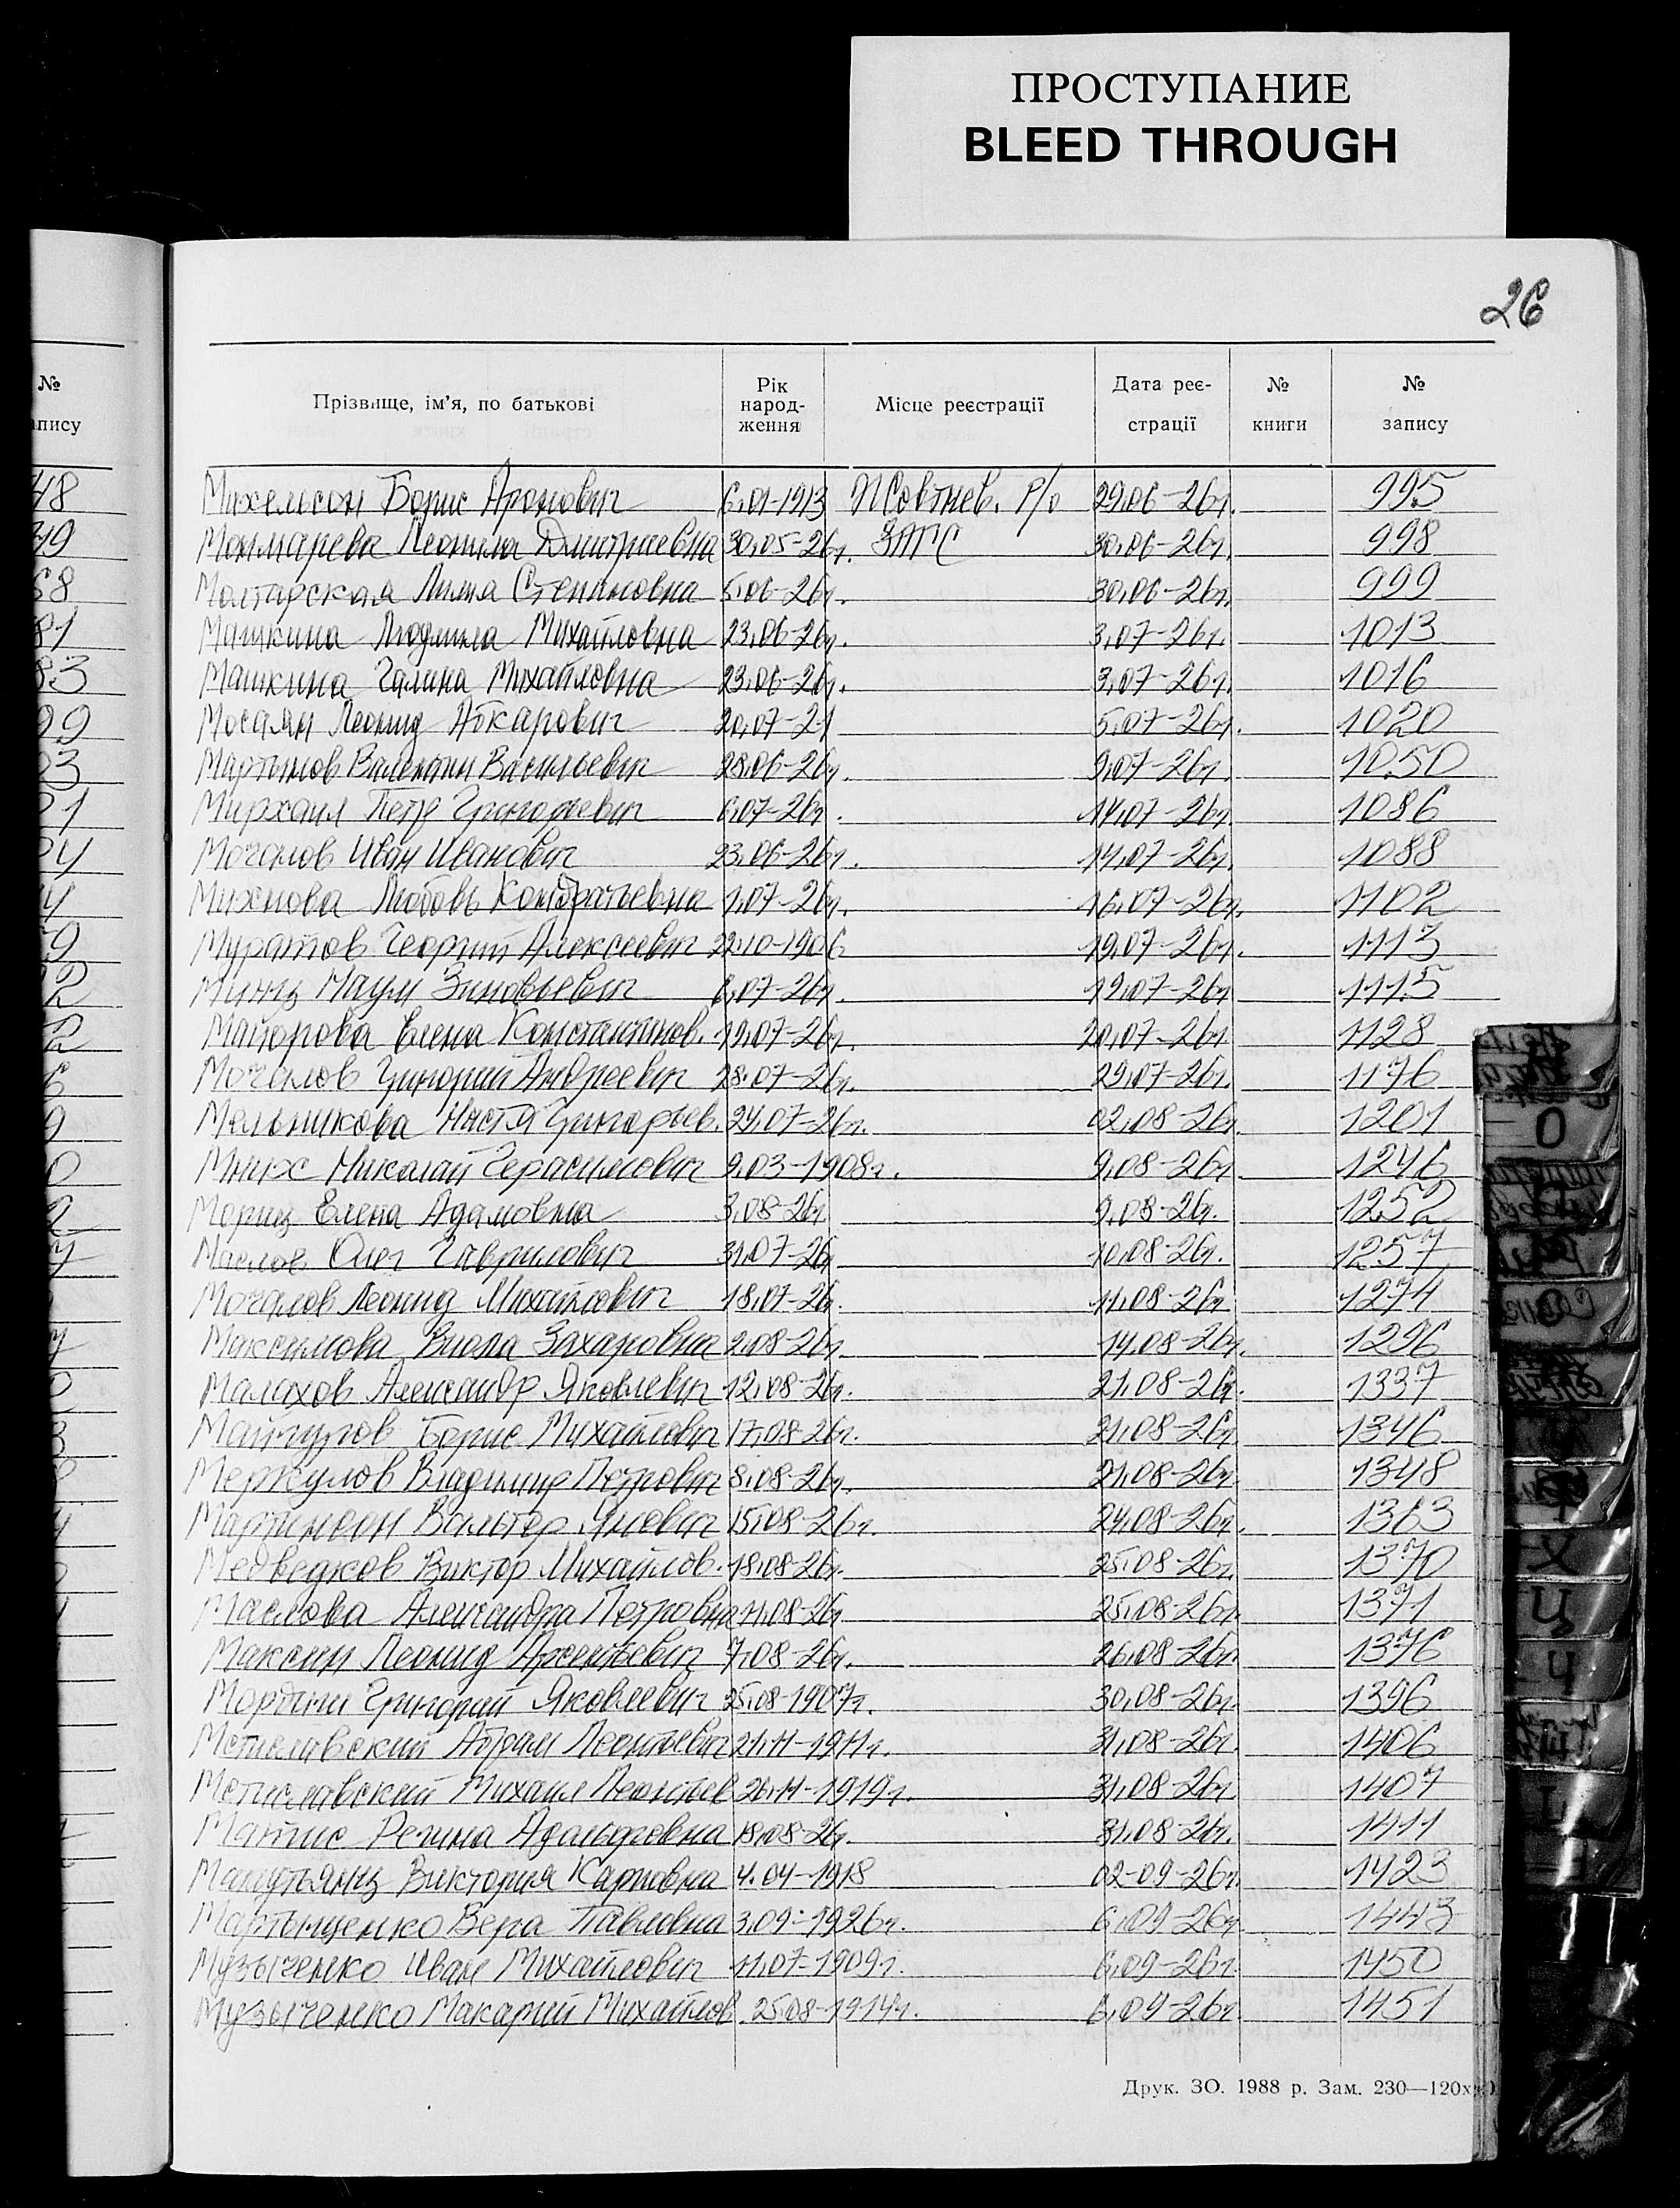 ПРОСТУПАНИЕ
BLEED THROUGH
26
№ запису
Прізвище, ім’я, по батькові Рік народ-ження Місце реєстрації Дата реє-страції № книги № запису
Михельсон Борис Аронович 6.01-1913 Жовтнев. р/о 29.06-26г. 995
Леонила Дмитриевна 30.05-26г. ЗАГС 30.06-26г. 998
Молтарская Лилия Степановна 5.06-26г. 30.06-26г. 999
Машкина Людмила Михайловна 23.06-26г. 3.07-26г. 1013
Машкина Галина Михайловна 23.06-26г. 3.07-26г. 1016
Мосаян Леонид Абкарович 20.07-21 5.07-26г. 1020
Мартынов Валентин Васильевич 28.06-26г. 9.07-26г. 1050
Мирхаил Петр Григорьевич 6.07-26г. 14.07-26г. 1086
Мочалов Иван Иванович 23.06-26г. 14.07-26г. 1088
Михнова Любовь Кондратьевна 1.07-26г. 16.07-26г. 1102
Муратов Георгий Алексеевич 22.10-1906 19.07-26г. 1113
Минц Наум Зиновьевич 8.07-26г. 19.07-26г. 1115
Майорова Елена Константинов. 19.07-26г. 20.07-26г. 1128
Мочалов Григорий Андреевич 28.07-26г. 29.07-26г. 1176
Мельникова Настя Григорьев. 24.07-26г. 02.08-26г. 1201
Мних Николай Герасимович 9.03-1908г. 9.08-26г. 1246
Мориц Елена Адамовна 3.08-26г. 9.08-26г. 1252
Маслов Олег Гаврилович 31.07-26г. 10.08-26г. 1257
Мочалов Леонид Михайлович 18.07-26г. 11.08-26г. 1274
Максимова Виола Захаровна 2.08-26г. 14.08-26г. 1296
Малахов Александр Яковлевич 12.08-26г. 21.08-26г. 1337
Борис Михайлович 17.08-26г. 21.08-26г. 1346
Меркулов Владимир Петрович 8.08-26г. 21.08-26г. 1348
Мартинсон Вальтер Янович 15.08-26г. 24.08-26г. 1363
Медведков Виктор Михайлов. 18.08-26г. 25.08-26г. 1370
Маслова Александра Петровна 11.08-26г. 25.08-26г. 1371
Максин Леонид Арсентьевич 7.08-26г. 26.08-26г. 1376
Мордин Григорий Яковлевич 25.08-1907г. 30.08-26г. 1396
Мстиславский Абрам Леонтьевич 21.11-1911г. 31.08-26г. 1406
Мстиславский Михаил Леонтьев 26.11-1919г. 31.08-26г. 1407
Матис Регина Адольфовна 18.08-26г. 31.08-26г. 1411
Манутьянц Виктория Карповна 4.04-1918 02-09-26г. 1423
Мартыщенко Вера Павловна 3.09-1926г. 6.09-26г. 1443
Музыченко Иван Михайлович 11.07-1909г. 6.09-26г. 1450
Музыченко Макарий Михайлов. 25.08-1914г. 6.09-26г. 1451
Друк. ЗО. 1988 р. Зам. 230—120х
О
Х
Ц
Ч